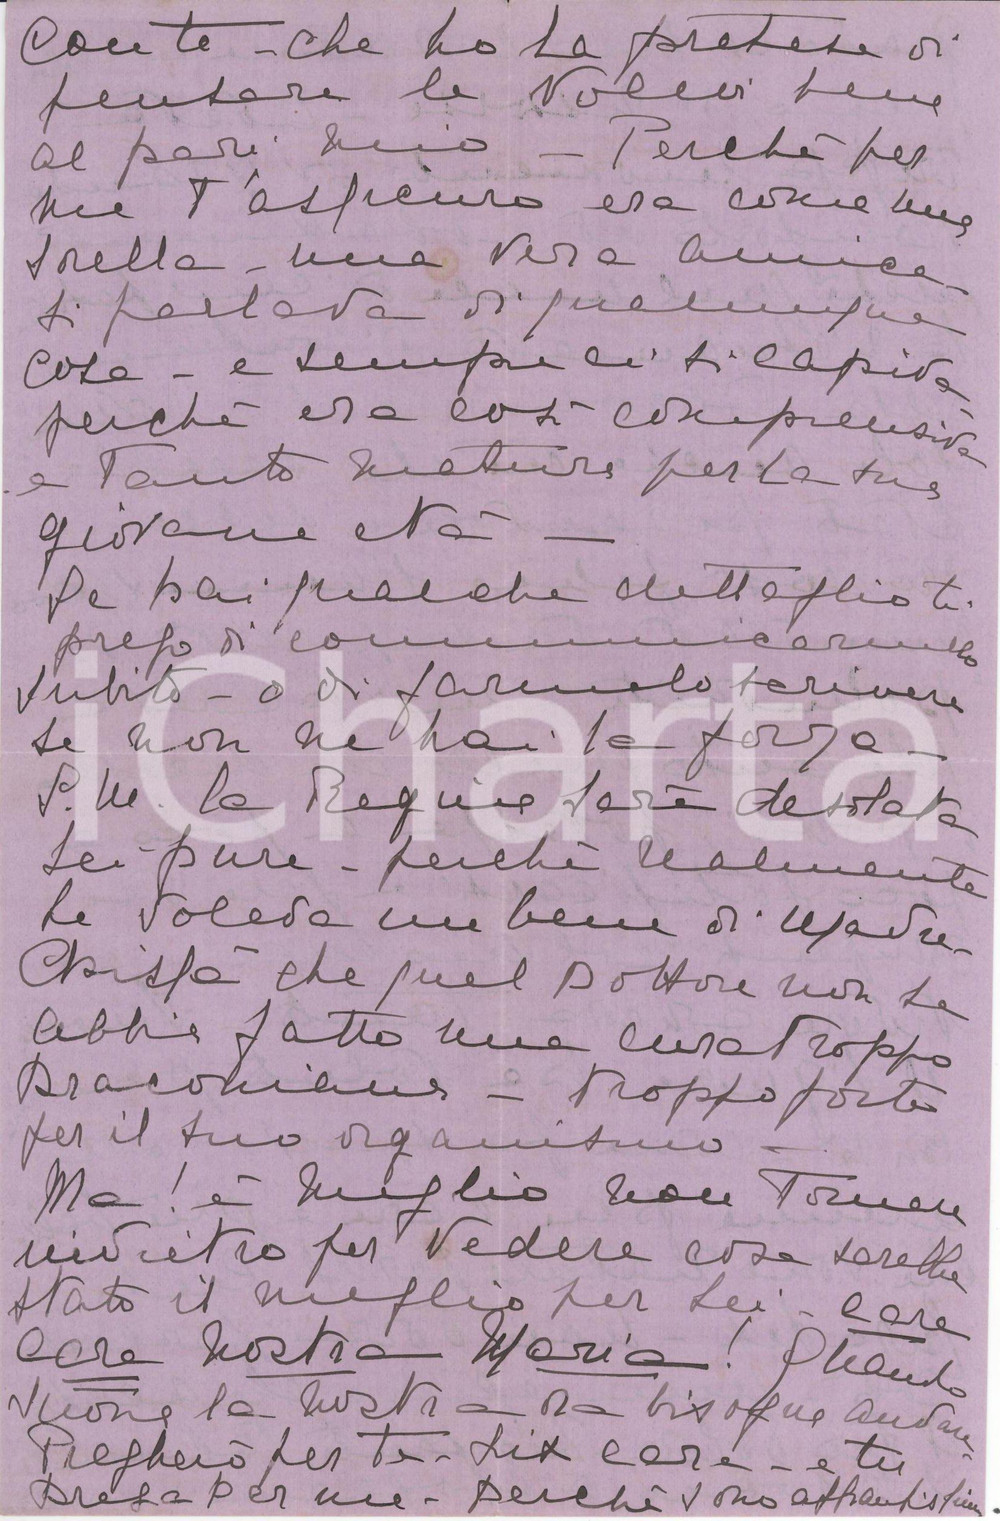 conte - che ho la pretesa di
pensare le volevi bene
al pari mio - Perchè per
me T'assicuro era come una
sorella - una vera amica -
si parlava di qualunque
cosa - e sempre ci si capiva
perchè era così comprensiva
e Tanto matura per la sua
giovane età -
Se hai qualche dettaglio ti
prego di comunicarmelo
subito - o di farmelo scrivere
se non ne hai la forza -
S.M. la Regina sarà desolata
Lei pure - perchè realmente
Le voleva un bene di Madre -
Chissà che quel Dottore non le
abbia fatto una cura troppo
Draconiana - troppo forte
per il suo organismo -
Ma! è meglio non Tornare
indietro per vedere cosa sarebbe
stato il meglio per Lei - cara
cara nostra Maria! Quando
suona la nostra ora bisogna andare -
Pregherò per te - cara - e tu
prega per me - perchè sono affrantissima.
iCharta